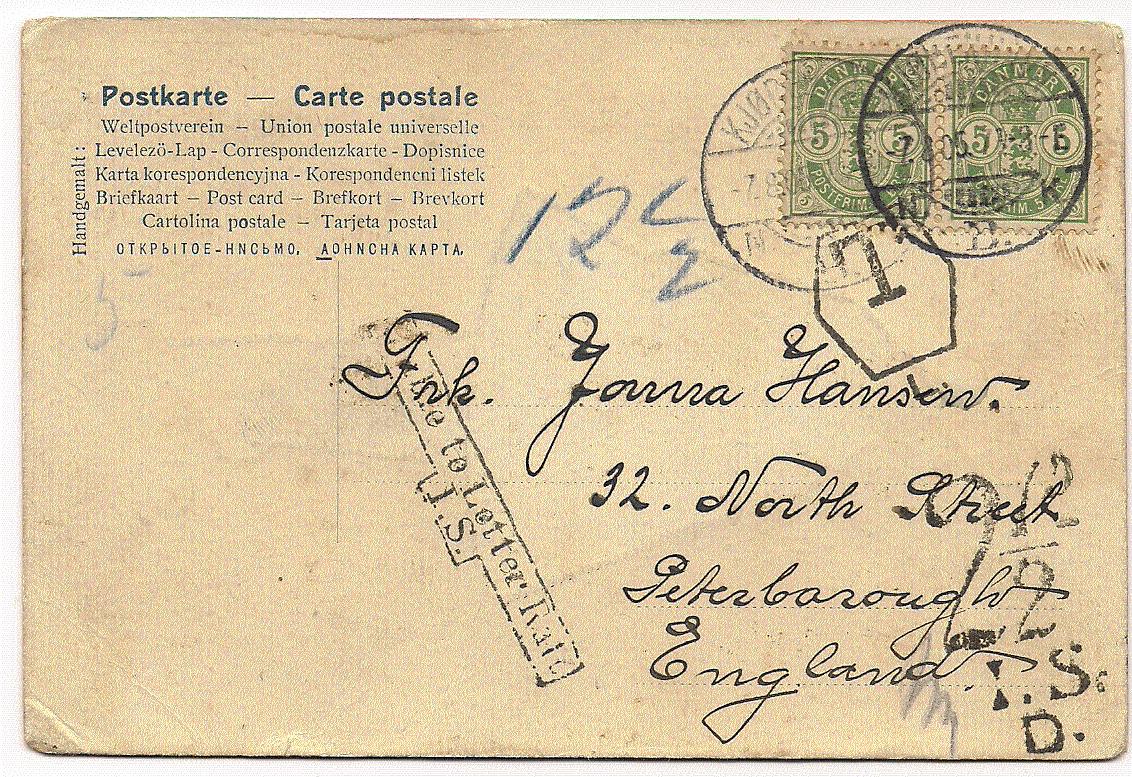 Postkarte — Carte postale
Weltpostverein – Union postale universelle
Levelezö-Lap - Correspondenzkarte - Dopisnice
Karta korespondencyjna - Korespondencni listek
Briefkaart – Post card – Brefkort – Brevkort
Cartolina postale – Tarjeta postal
ОТКРЫТОЕ-НИСЬМО, ДОНИСНА КАРТА.
Handgemalt:
DANMARK
5 5
POSTFRIM.
DANMARK
5 5
T
L
Frk. Janna Hansen.
32. North Street
Peterborough
England.
to Letter Rate
I.S.
I.S.
D.